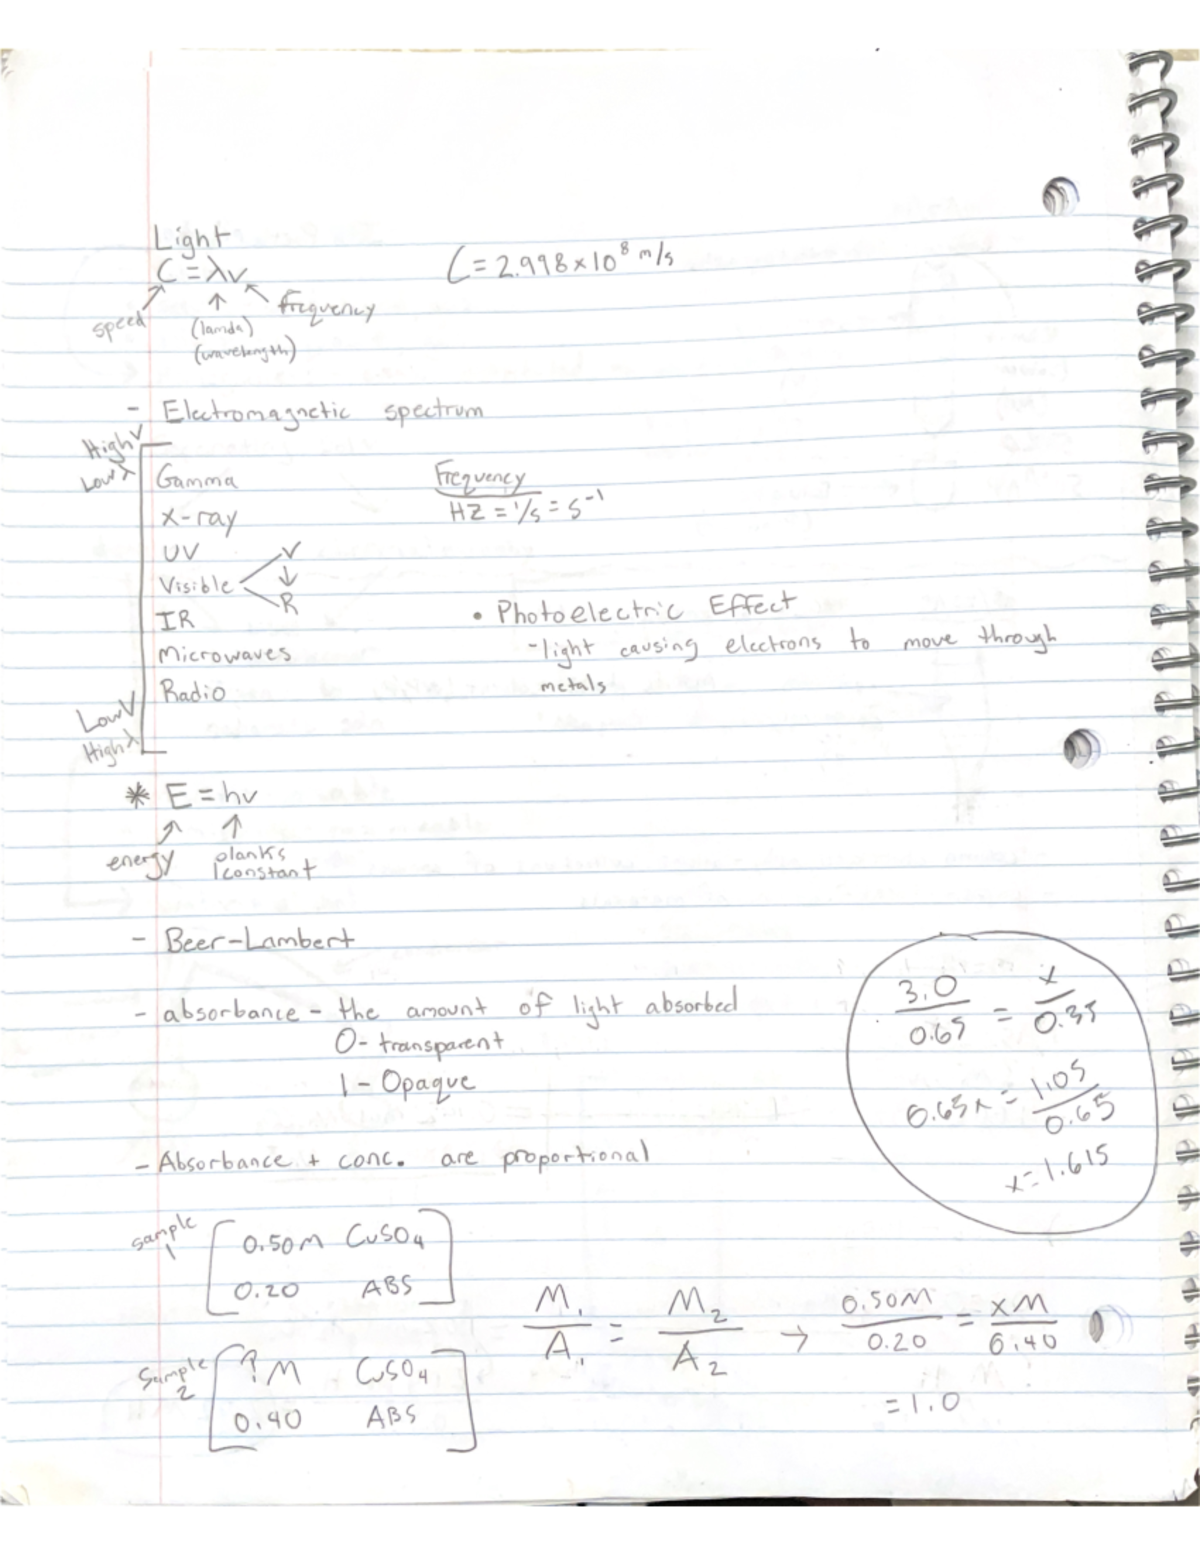 Light
C = λν
C = 2.998 × 10⁸ m/s
speed
(lamda)
(wavelength)
frequency
- Electromagnetic spectrum
High ν
Low λ
Gamma
X-ray
UV
Visible
V
↓
R
IR
Microwaves
Radio
Low ν
High λ
Frequency
HZ = 1/s = s⁻¹
• Photoelectric Effect
- light causing electrons to move through
metals
* E = hν
energy
planks
constant
- Beer-Lambert
- absorbance - the amount of light absorbed
0 - transparent
1 - Opaque
- Absorbance + conc. are proportional
3.0/0.65 = x/0.35
0.65x = 1.05/0.65
x = 1.615
sample 1
0.50M CuSO₄
0.20 ABS
Sample 2
? M CuSO₄
0.40 ABS
M₁/A₁ = M₂/A₂ → 0.50M/0.20 = xM/0.40
= 1.0